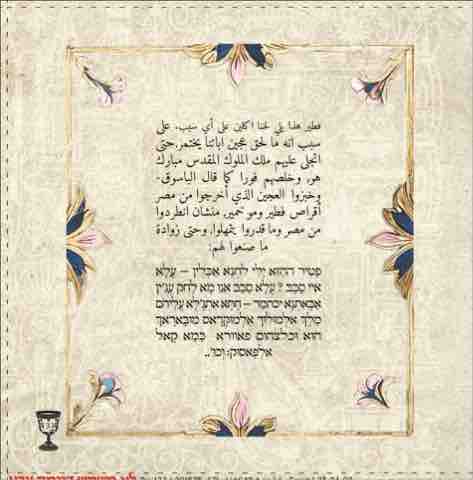 فطير هذا يلي نحنا اكلين على أي سبب. على
سبب انه ما لحق عجين اباتنا يختمر. حتى
انجلى عليهم ملك الملوك المقدس مبارك
هو، وخلصهم فورا كما قال الباسوق.
وخبزوا العجين الذي أخرجوا من مصر
أقراص فطير ومو خمير، منشان انطردوا
من مصر وما قدروا يتمهلوا، وحتى زوادة
ما صنعوا لهم:
פטיר ההזא ילי לחנא אכלין – עלא
איי סבב ? עלא סבב אנו מא לחק עג'ין
אבאתנא יכתמר – חתא אתג'לא עליהם
מלך אלמולוך אלמוקדאס מובאראך
הוא וכלצהום פאוורא כמא קאל
אלפאסוק: וכו'..